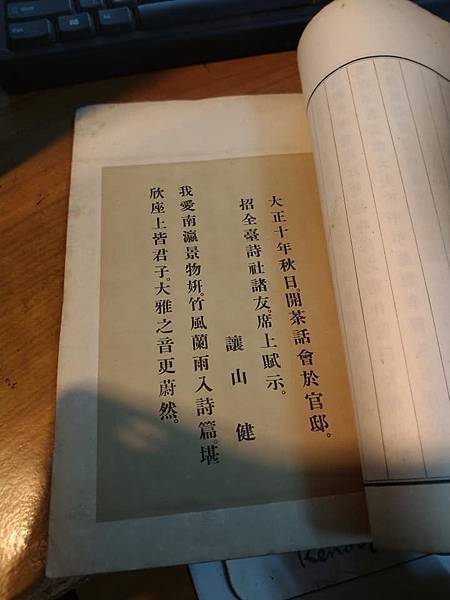 大正十年秋日。開茶話會於官邸。
招全臺詩社諸友。席上賦示。
讓山 健
我愛南瀛景物姸。竹風蘭雨入詩篇。堪
欣座上皆君子。大雅之音更蔚然。